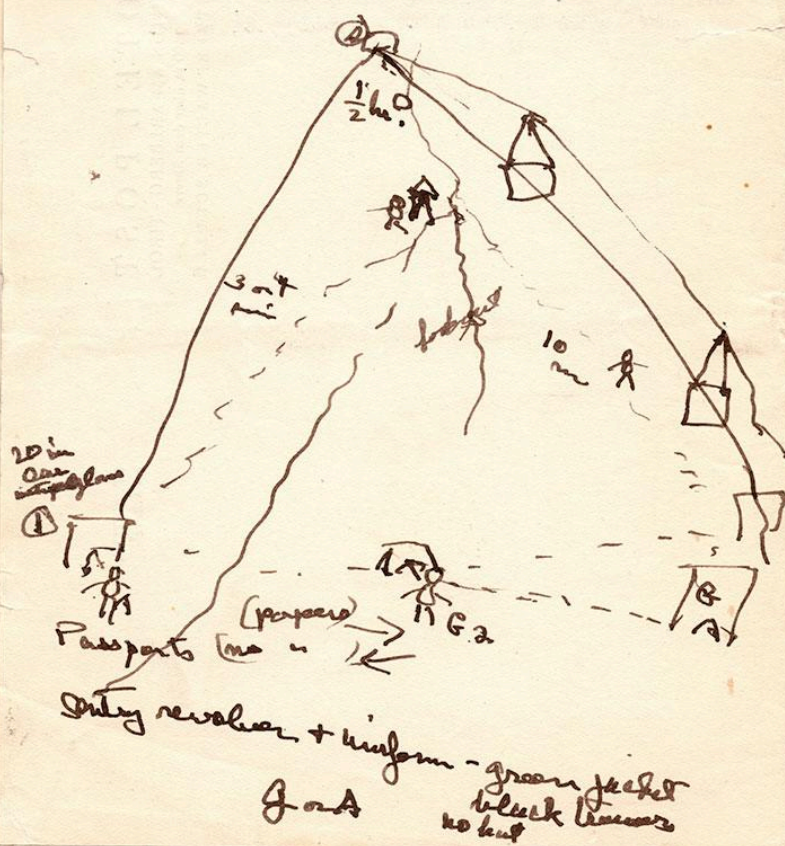 1/2 hr.
3 or 4
min
10
m
20 in
one
①
G
A
G 2.
Passports (papers)
(no " )
Sentry revolver + uniform - green jacket
black trousers
no hat
G or A